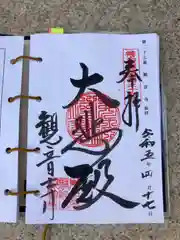 奉拝
令和五年四月十七日
大悲殿
觀音寺